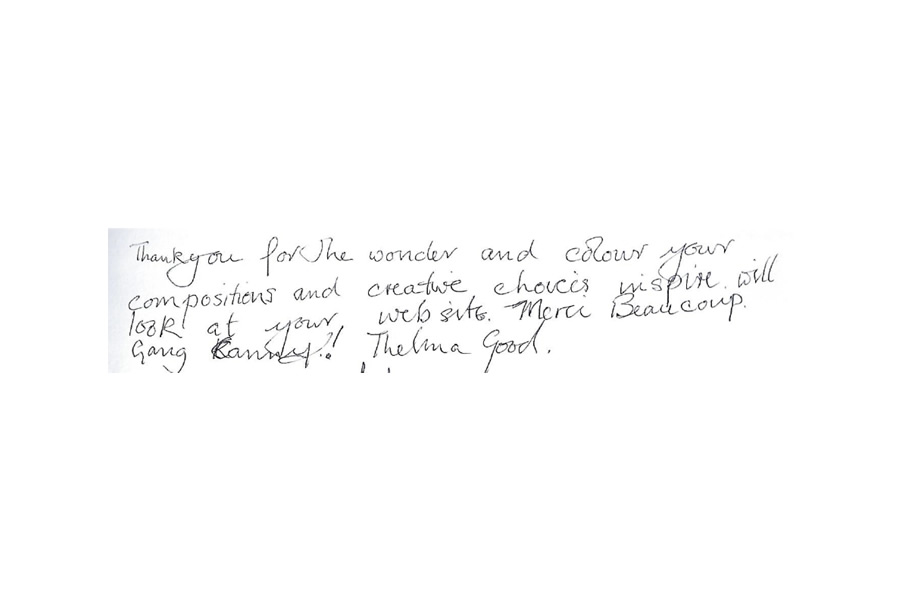 Thankyou for the wonder and colour your
compositions and creative choices inspire. will
look at your website. Merci Beaucoup.
Gang Kanny!! Thelma Good.